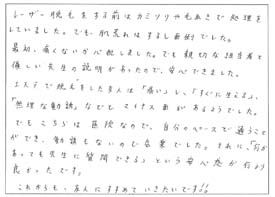 レーザー脱毛をする前はカミソリや毛ぬきで処理を
していました。でも、肌荒れはするし面倒でした。
最初、痛くないか心配しました。でも親切な担当者と
優しい先生の説明があったので、安心できました。
エステで脱毛をした友人は「痛いし、「すぐに生えるよ」、
「無理な勧誘」などと マイナス面があるようでした。
でもこちらは医院なので、自分のペースで通うこと
ができ、勧誘もないので気楽でした。それに、「何か
あっても先生に質問できる」という安心感が何より
良かったです。
これからも、友人にすすめていきたいです!!